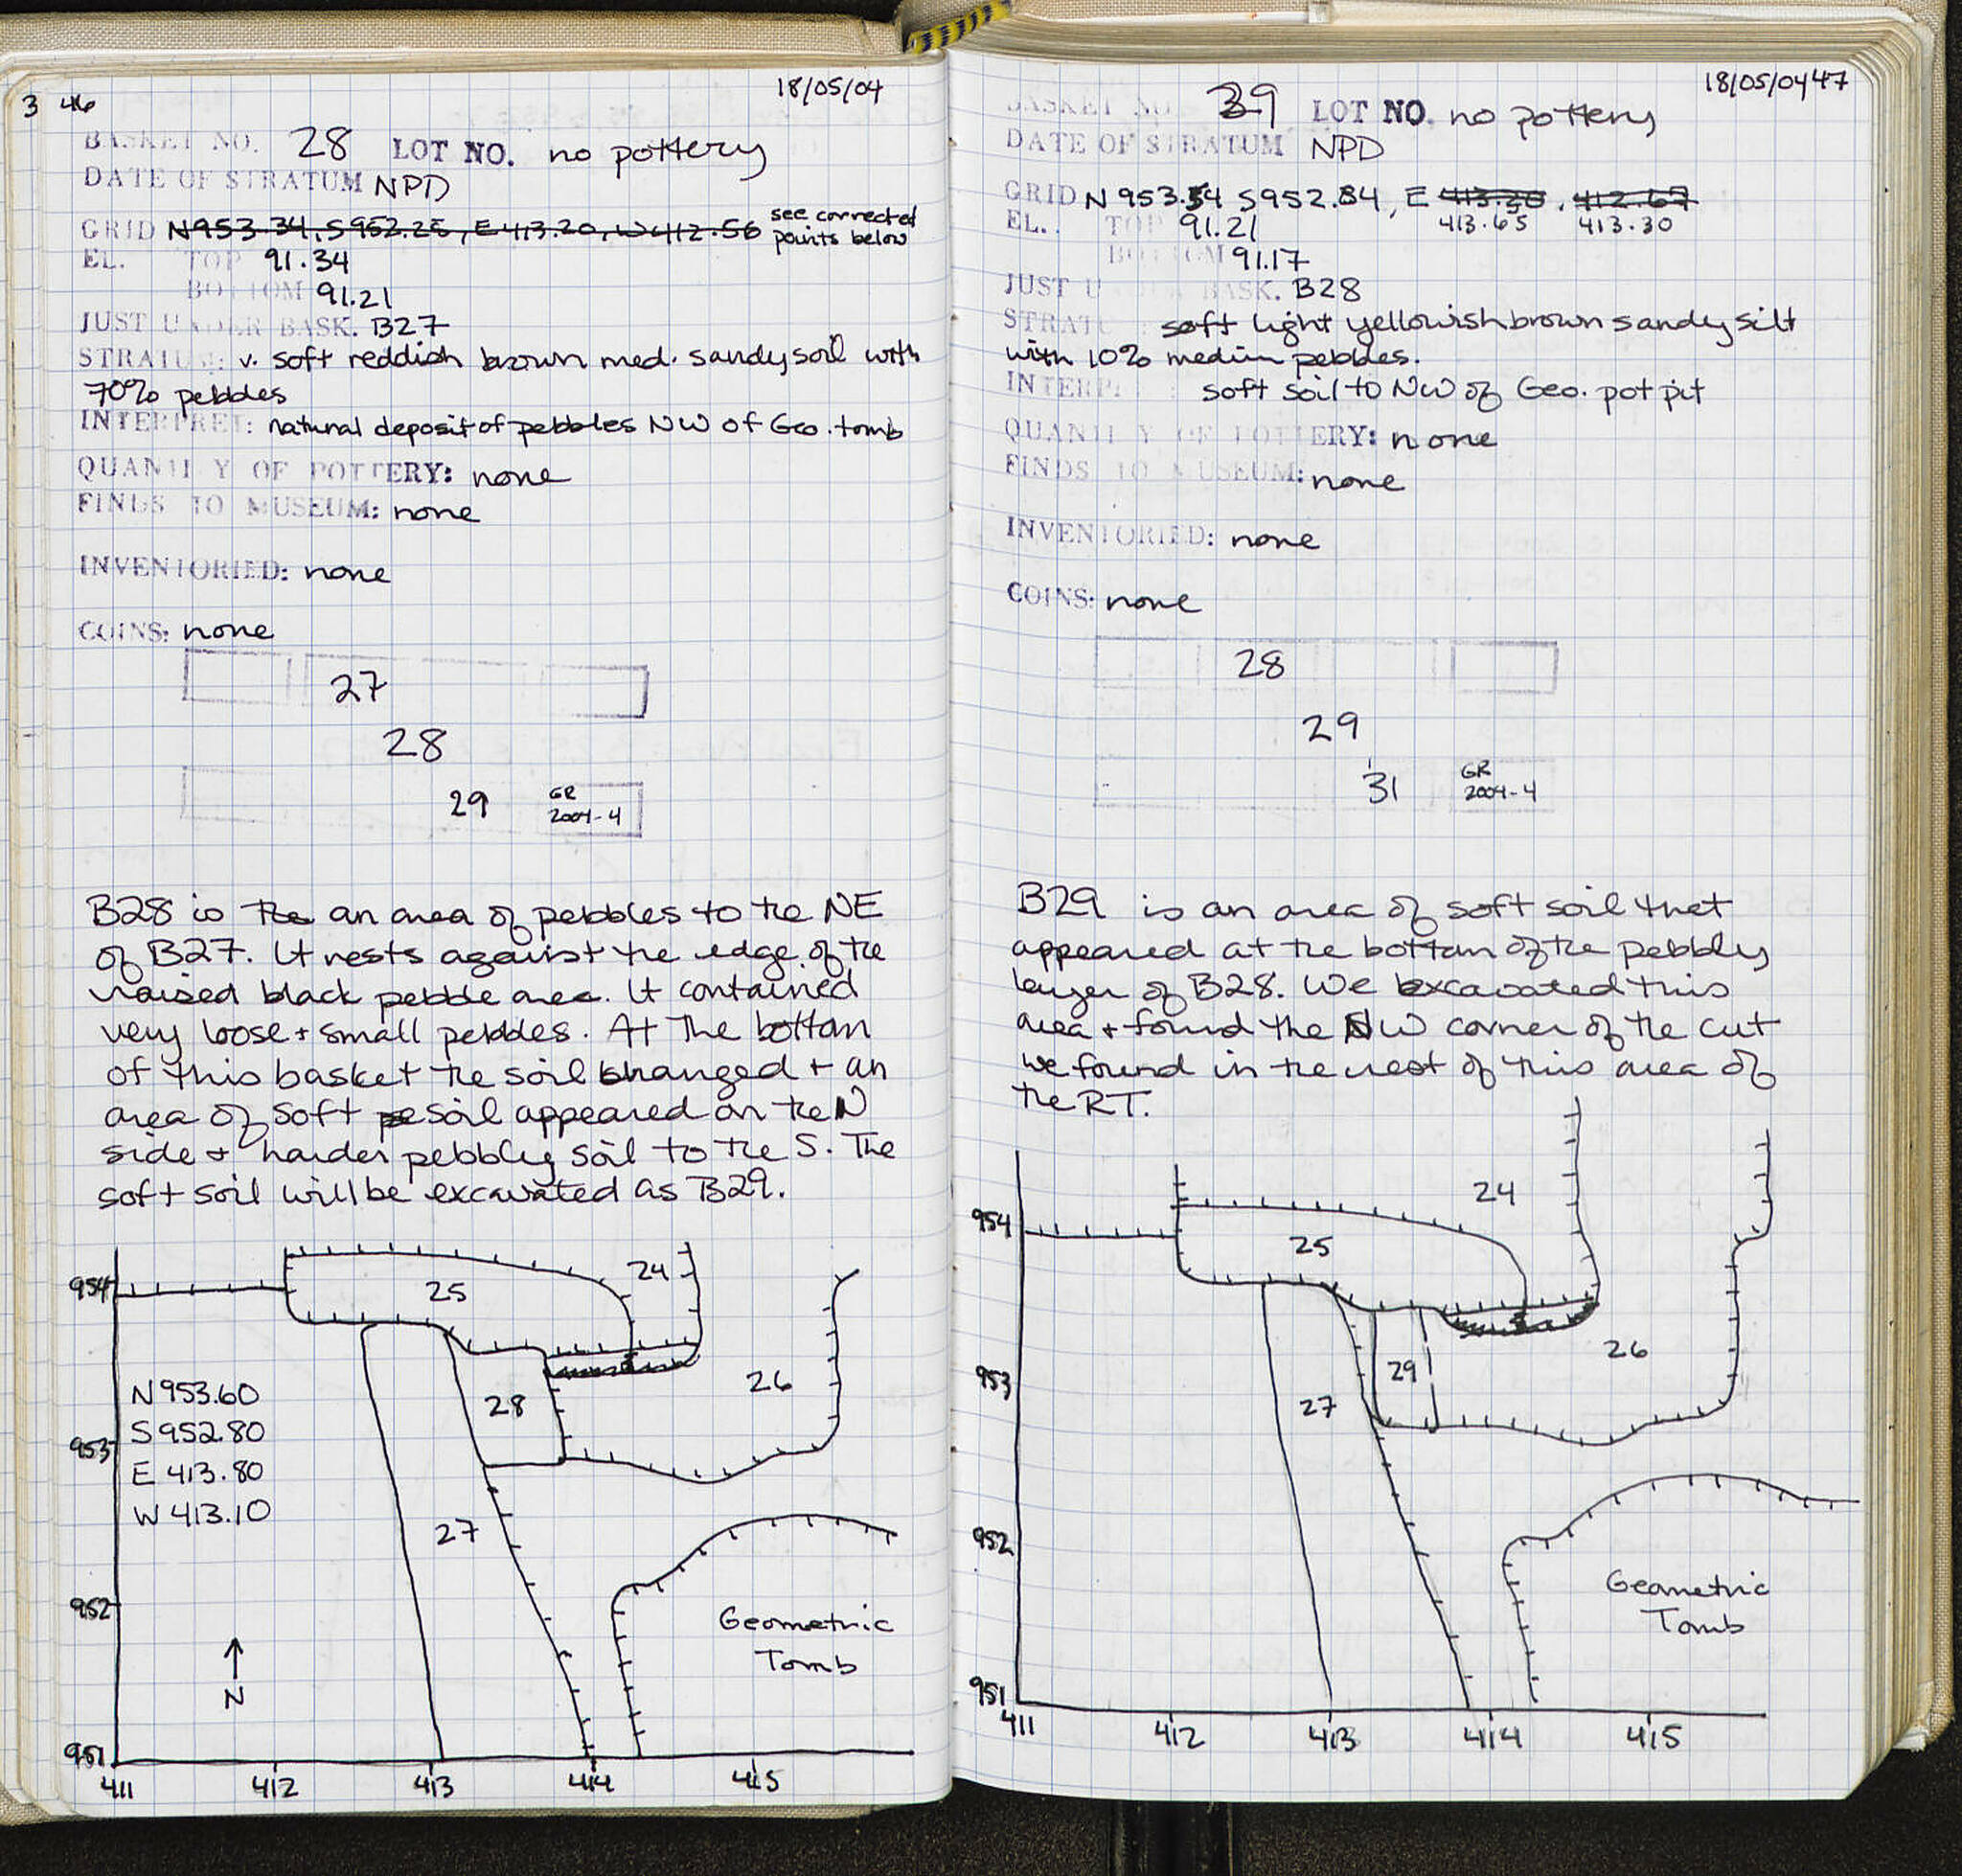 3 46
18/05/04
BASKET NO. 28 LOT NO. no pottery
DATE OF STRATUM NPD
GRID N953.34, S952.25, E413.20, W412.56 see corrected
points below
EL. TOP 91.34
BOTTOM 91.21
JUST UNDER BASK. B27
STRATUM: v. soft reddish brown med. sandy soil with
70% pebbles
INTERPRET: natural deposit of pebbles NW of Geo. tomb
QUANTITY OF POTTERY: none
FINDS TO MUSEUM: none
INVENTORIED: none
COINS: none
27
28
29 GR
2004-4
B28 is the an area of pebbles to the NE
of B27. It rests against the edge of the
raised black pebble area. It contained
very loose + small pebbles. At the bottom
of this basket the soil changed + an
area of soft pe soil appeared on the N
side + harder pebbly soil to the S. The
soft soil will be excavated as B29.
954
25
24
N953.60
S952.80
E 413.80
W 413.10
28
26
953
27
952
Geometric
Tomb
N
951
411 412 413 414 415
18/05/04 47
BASKET NO. 29 LOT NO. no pottery
DATE OF STRATUM NPD
GRID N953.54 S952.84, E 413.20, 412.67
413.65 413.30
EL. TOP 91.21
BOTTOM 91.17
JUST UNDER BASK. B28
STRATUM: soft light yellowish brown sandy silt
with 10% medium pebbles.
INTERPRET: soft soil to NW of Geo. pot pit
QUANTITY OF POTTERY: none
FINDS TO MUSEUM: none
INVENTORIED: none
COINS: none
28
29
31 GR
2004-4
B29 is an area of soft soil that
appeared at the bottom of the pebbly
layer of B28. We excavated this
area + found the NW corner of the cut
we found in the rest of this area of
the RT.
24
954
25
26
953
29
27
952
Geometric
Tomb
951
411 412 413 414 415